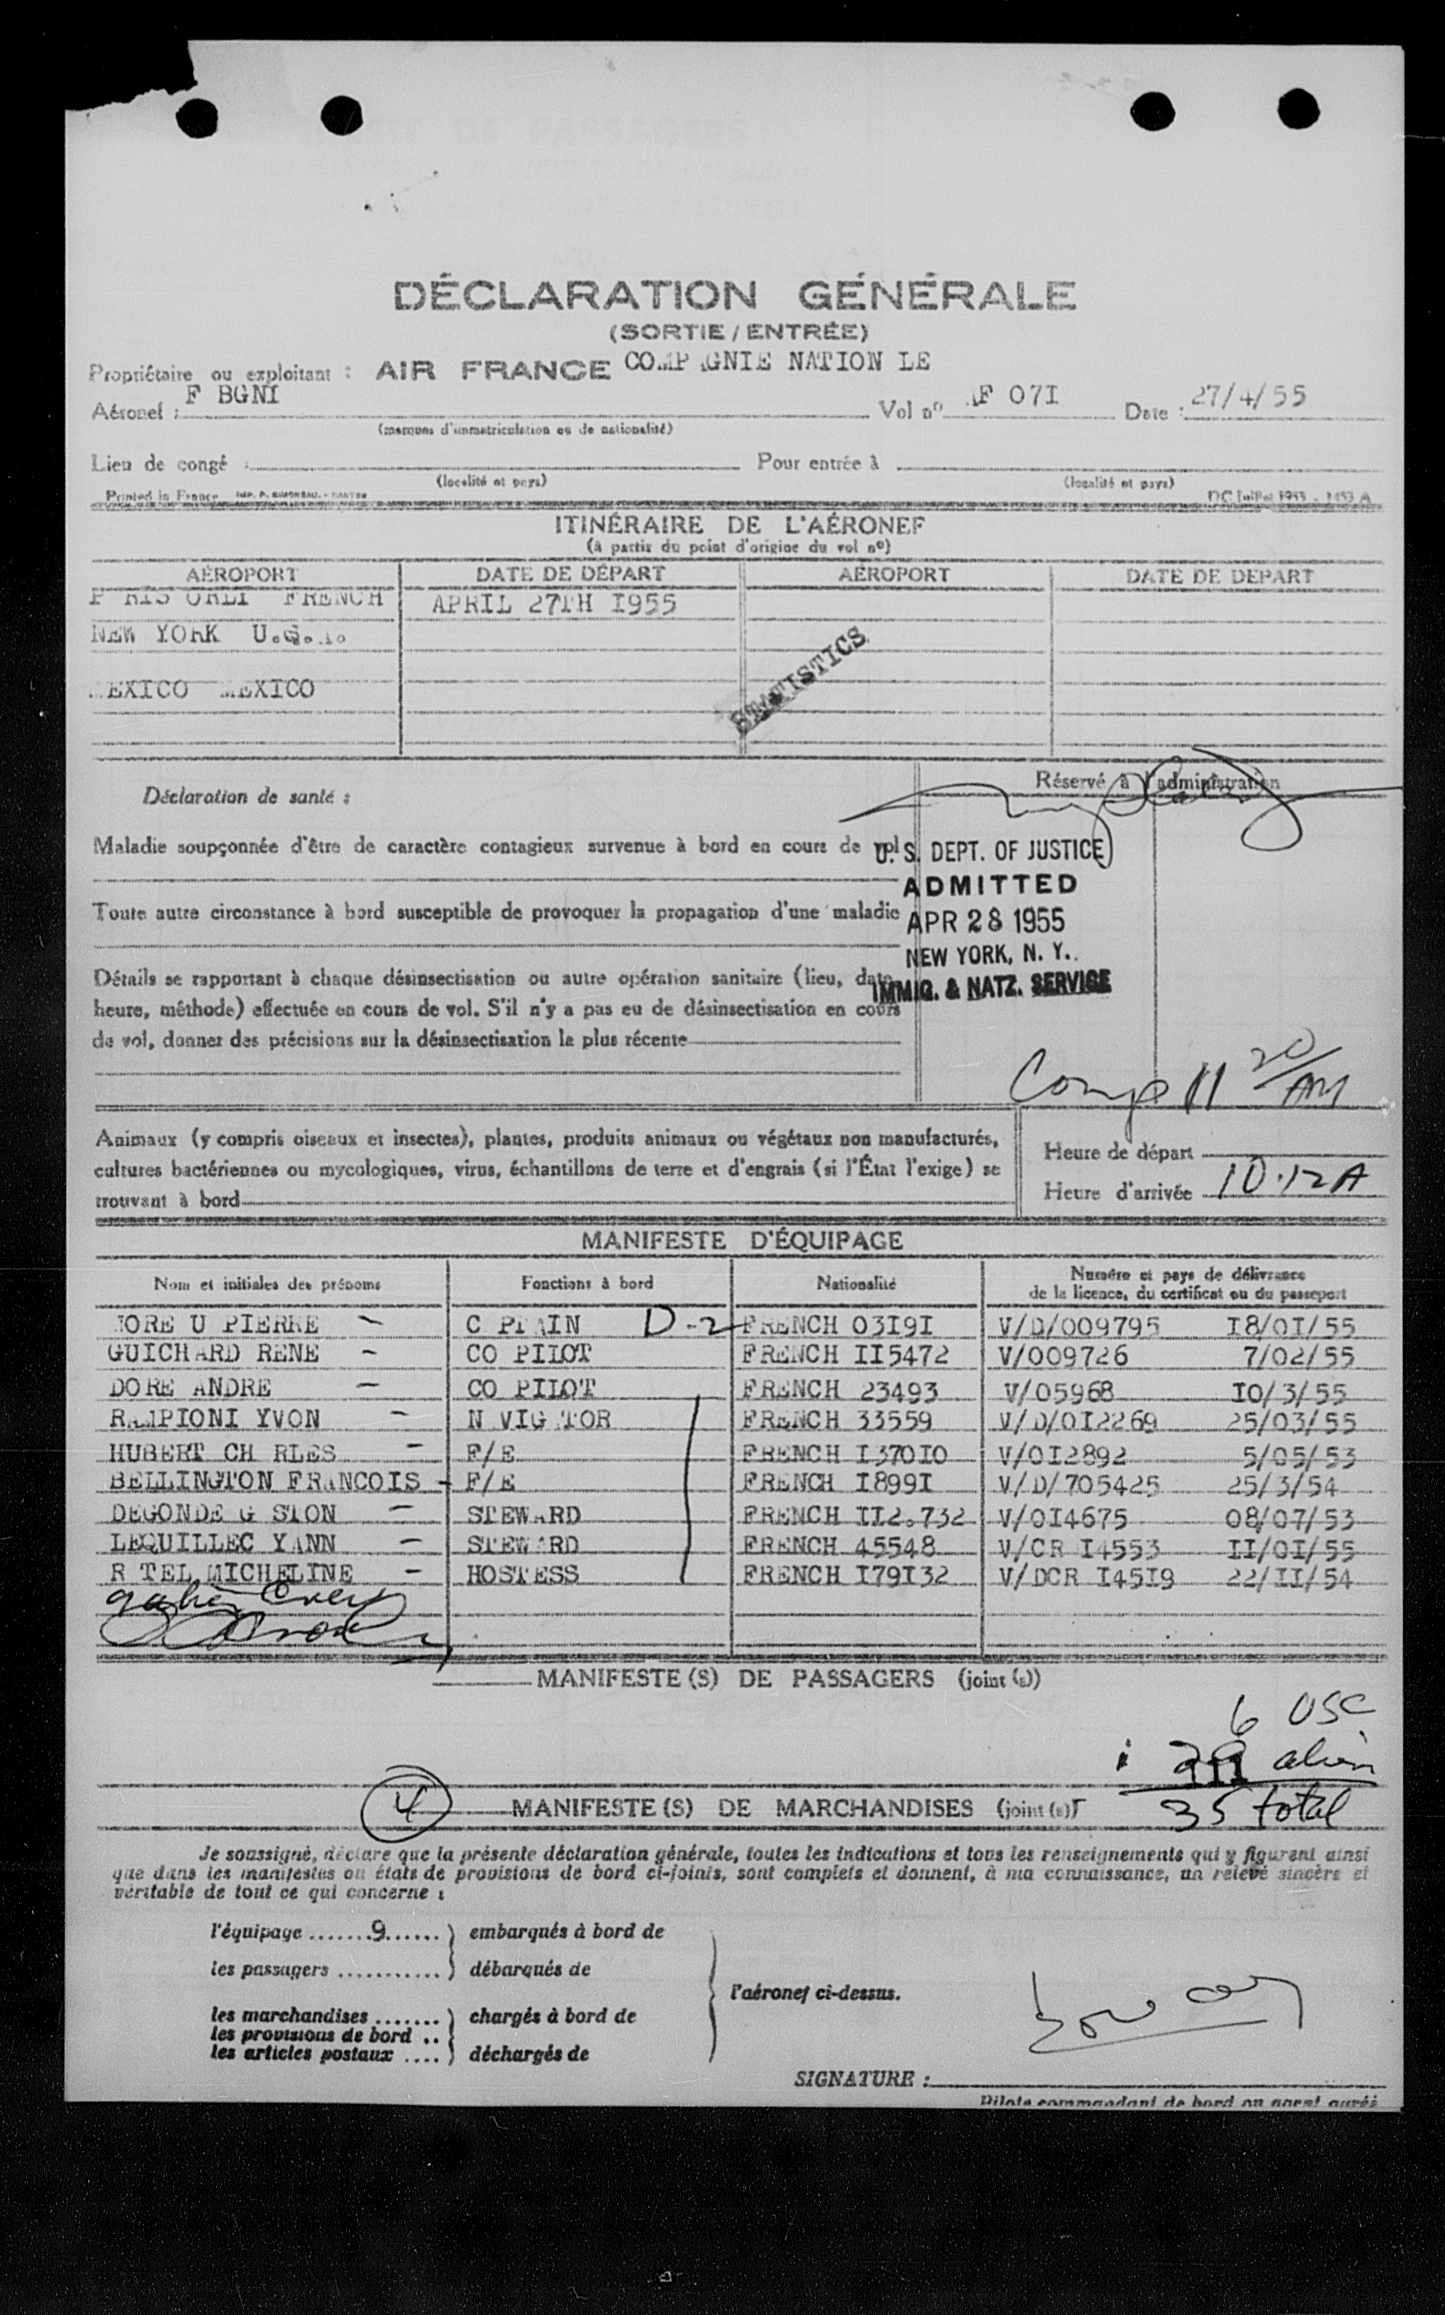 DÉCLARATION GÉNÉRALE
(SORTIE / ENTRÉE)
Propriétaire ou exploitant : AIR FRANCE COMP GNIE NATION LE
Aéronef : F BGNI Vol nº AF 07I Date : 27/4/55
(marques d'immatriculation ou de nationalité)
Lieu de congé : Pour entrée à
(localité et pays) (localité et pays)
Printed in France
ITINÉRAIRE DE L'AÉRONEF
(à partir du point d'origine du vol nº)
AÉROPORT DATE DE DÉPART AÉROPORT DATE DE DÉPART
P RIS ORLI FRENCH APRIL 27TH I955
NEW YORK U.S.A.
MEXICO MEXICO
STATISTICS
Réservé à l'administration
Déclaration de santé :
Maladie soupçonnée d'être de caractère contagieux survenue à bord en cours de vol
U. S. DEPT. OF JUSTICE
ADMITTED
Toute autre circonstance à bord susceptible de provoquer la propagation d'une maladie
APR 28 1955
NEW YORK, N. Y.
IMMIG. & NATZ. SERVICE
Détails se rapportant à chaque désinsectisation ou autre opération sanitaire (lieu, date,
heure, méthode) effectuée en cours de vol. S'il n'y a pas eu de désinsectisation en cours
de vol, donner des précisions sur la désinsectisation la plus récente
Comp 11 20/AM
Animaux (y compris oiseaux et insectes), plantes, produits animaux ou végétaux non manufacturés,
cultures bactériennes ou mycologiques, virus, échantillons de terre et d'engrais (si l'État l'exige) se
trouvant à bord
Heure de départ
Heure d'arrivée 10.12A
MANIFESTE D'ÉQUIPAGE
Nom et initiales des prénoms Fonctions à bord Nationalité Numéro et pays de délivrance
de la licence, du certificat ou du passeport
MORE U PIERRE - C PTAIN D-2 FRENCH 03I9I V/D/009795 I8/0I/55
GUICHARD RENE - CO PILOT FRENCH II5472 V/009726 7/02/55
DORE ANDRE - CO PILOT FRENCH 23493 V/05968 I0/3/55
RAMPIONI YVON - N VIG TOR FRENCH 33559 V/D/0I2269 25/03/55
HUBERT CH RLES - F/E FRENCH I370I0 V/0I2892 5/05/53
BELLINGTON FRANCOIS - F/E FRENCH I899I V/D/705425 25/3/54
DEGONDE G STON - STEWARD FRENCH II2.732 V/0I4675 08/07/53
LEQUILLEC YANN - STEWARD FRENCH 45548 V/CR I4553 II/0I/55
R TEL MICHELINE - HOSTESS FRENCH I79I32 V/DCR I45I9 22/II/54
MANIFESTE(S) DE PASSAGERS (joint (s))
6 USC
29 alien
35 total
4 MANIFESTE(S) DE MARCHANDISES (joint(s))
Je soussigné, déclare que la présente déclaration générale, toutes les indications et tous les renseignements qui y figurent ainsi
que dans les manifestes ou états de provisions de bord ci-joints, sont complets et donnent, à ma connaissance, un relevé sincère et
véritable de tout ce qui concerne :
l'équipage .......9...... ) embarqués à bord de
les passagers ............ ) débarqués de
l'aéronef ci-dessus.
les marchandises ....... ) chargés à bord de
les provisions de bord ..
les articles postaux .... ) déchargés de
SIGNATURE :
Pilote commandant de bord ou agent agréé